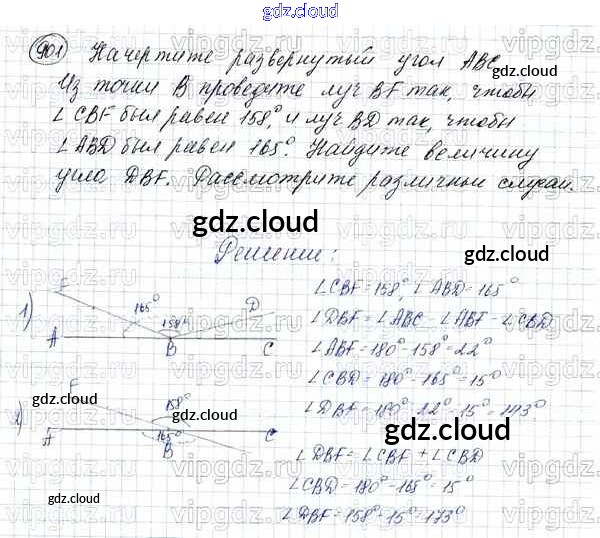 gdz.cloud
901 Начертите развернутый угол ABC
Из точки B проведите луч BF так, чтобы
∠CBF был равен 158°, и луч BD так, чтобы
∠ABD был равен 165°. Найдите величину
угла DBF. Рассмотрите различные случаи.
Решение:
1)
F
165°
158°
D
A
B
C
∠CBF=158°, ∠ABD=165°
∠DBF=∠ABC-∠ABF-∠CBD
∠ABF=180°-158°=22°
∠CBD=180°-165°=15°
∠DBF=180°-22°-15°=143°
2)
F
158°
165°
A
B
C
∠DBF=∠CBF+∠CBD
∠CBD=180°-165°=15°
∠DBF=158°+15°=173°
gdz.cloud
gdz.cloud
gdz.cloud
gdz.cloud
gdz.cloud
gdz.cloud
gdz.cloud
gdz.cloud
gdz.cloud
vipgdz.ru